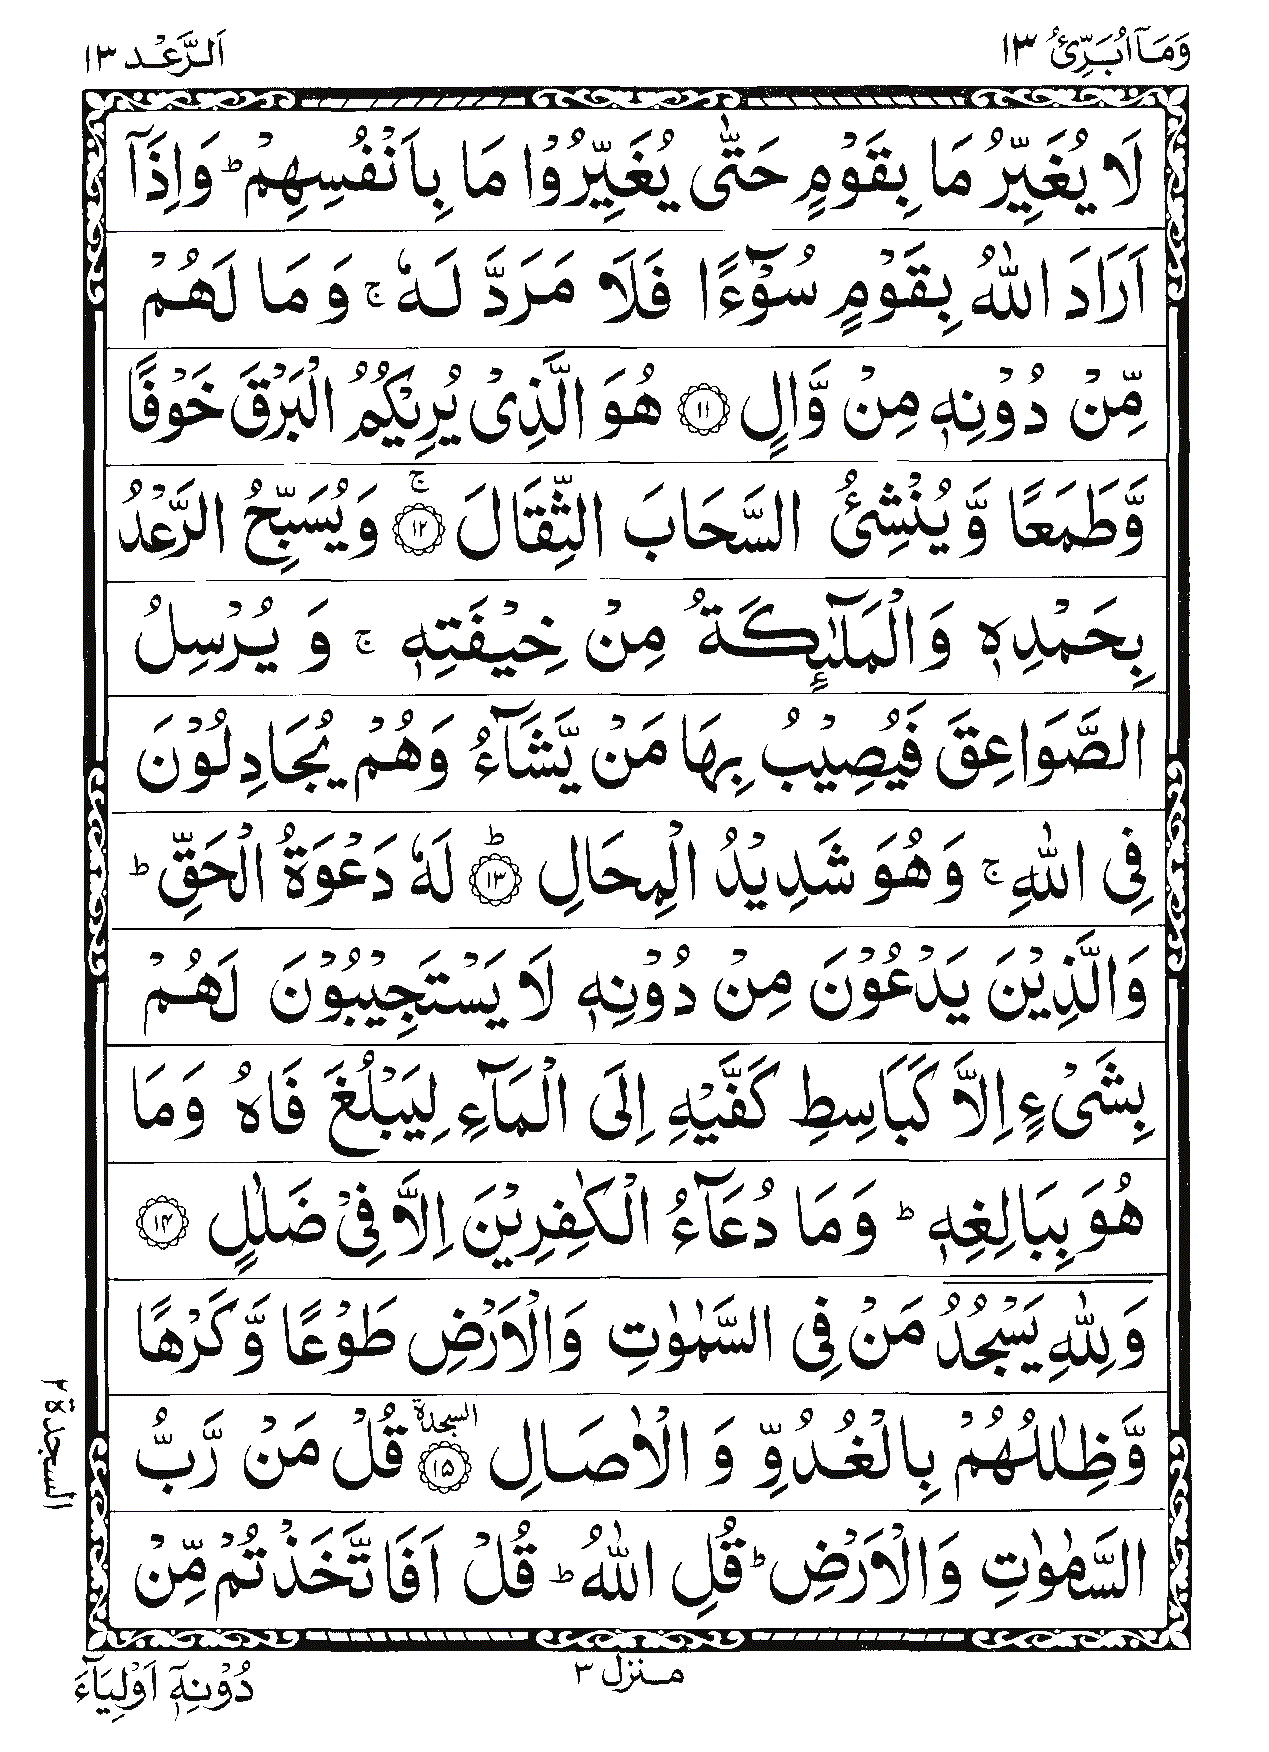 وَمَآ اُبَرِّئُ ١٣
اَلرَّعْد ١٣
لَا يُغَيِّرُ مَا بِقَوْمٍ حَتّٰى يُغَيِّرُوْا مَا بِاَنْفُسِهِمْ ؕ وَاِذَآ
اَرَادَ اللّٰهُ بِقَوْمٍ سُوْٓءًا فَلَا مَرَدَّ لَهٗ ۚ وَمَا لَهُمْ
مِّنْ دُوْنِهٖ مِنْ وَّالٍ ﴿١١﴾ هُوَ الَّذِىْ يُرِيْكُمُ الْبَرْقَ خَوْفًا
وَّطَمَعًا وَّيُنْشِئُ السَّحَابَ الثِّقَالَ ۚ ﴿١٢﴾ وَيُسَبِّحُ الرَّعْدُ
بِحَمْدِهٖ وَالْمَلٰٓئِكَةُ مِنْ خِيْفَتِهٖ ۚ وَيُرْسِلُ
الصَّوَاعِقَ فَيُصِيْبُ بِهَا مَنْ يَّشَآءُ وَهُمْ يُجَادِلُوْنَ
فِى اللّٰهِ ۚ وَهُوَ شَدِيْدُ الْمِحَالِ ؕ ﴿١٣﴾ لَهٗ دَعْوَةُ الْحَقِّ ؕ
وَالَّذِيْنَ يَدْعُوْنَ مِنْ دُوْنِهٖ لَا يَسْتَجِيْبُوْنَ لَهُمْ
بِشَىْءٍ اِلَّا كَبَاسِطِ كَفَّيْهِ اِلَى الْمَآءِ لِيَبْلُغَ فَاهُ وَمَا
هُوَ بِبَالِغِهٖ ؕ وَمَا دُعَآءُ الْكٰفِرِيْنَ اِلَّا فِىْ ضَلٰلٍ ﴿١٤﴾
وَلِلّٰهِ يَسْجُدُ مَنْ فِى السَّمٰوٰتِ وَالْاَرْضِ طَوْعًا وَّكَرْهًا
وَّظِلٰلُهُمْ بِالْغُدُوِّ وَالْاٰصَالِ ﴿١٥﴾ السجدة قُلْ مَنْ رَّبُّ
السَّمٰوٰتِ وَالْاَرْضِ ؕ قُلِ اللّٰهُ ؕ قُلْ اَفَاتَّخَذْتُمْ مِّنْ
السجدة ٢
منزل ٣
دُوْنِهٖٓ اَوْلِيَآءَ